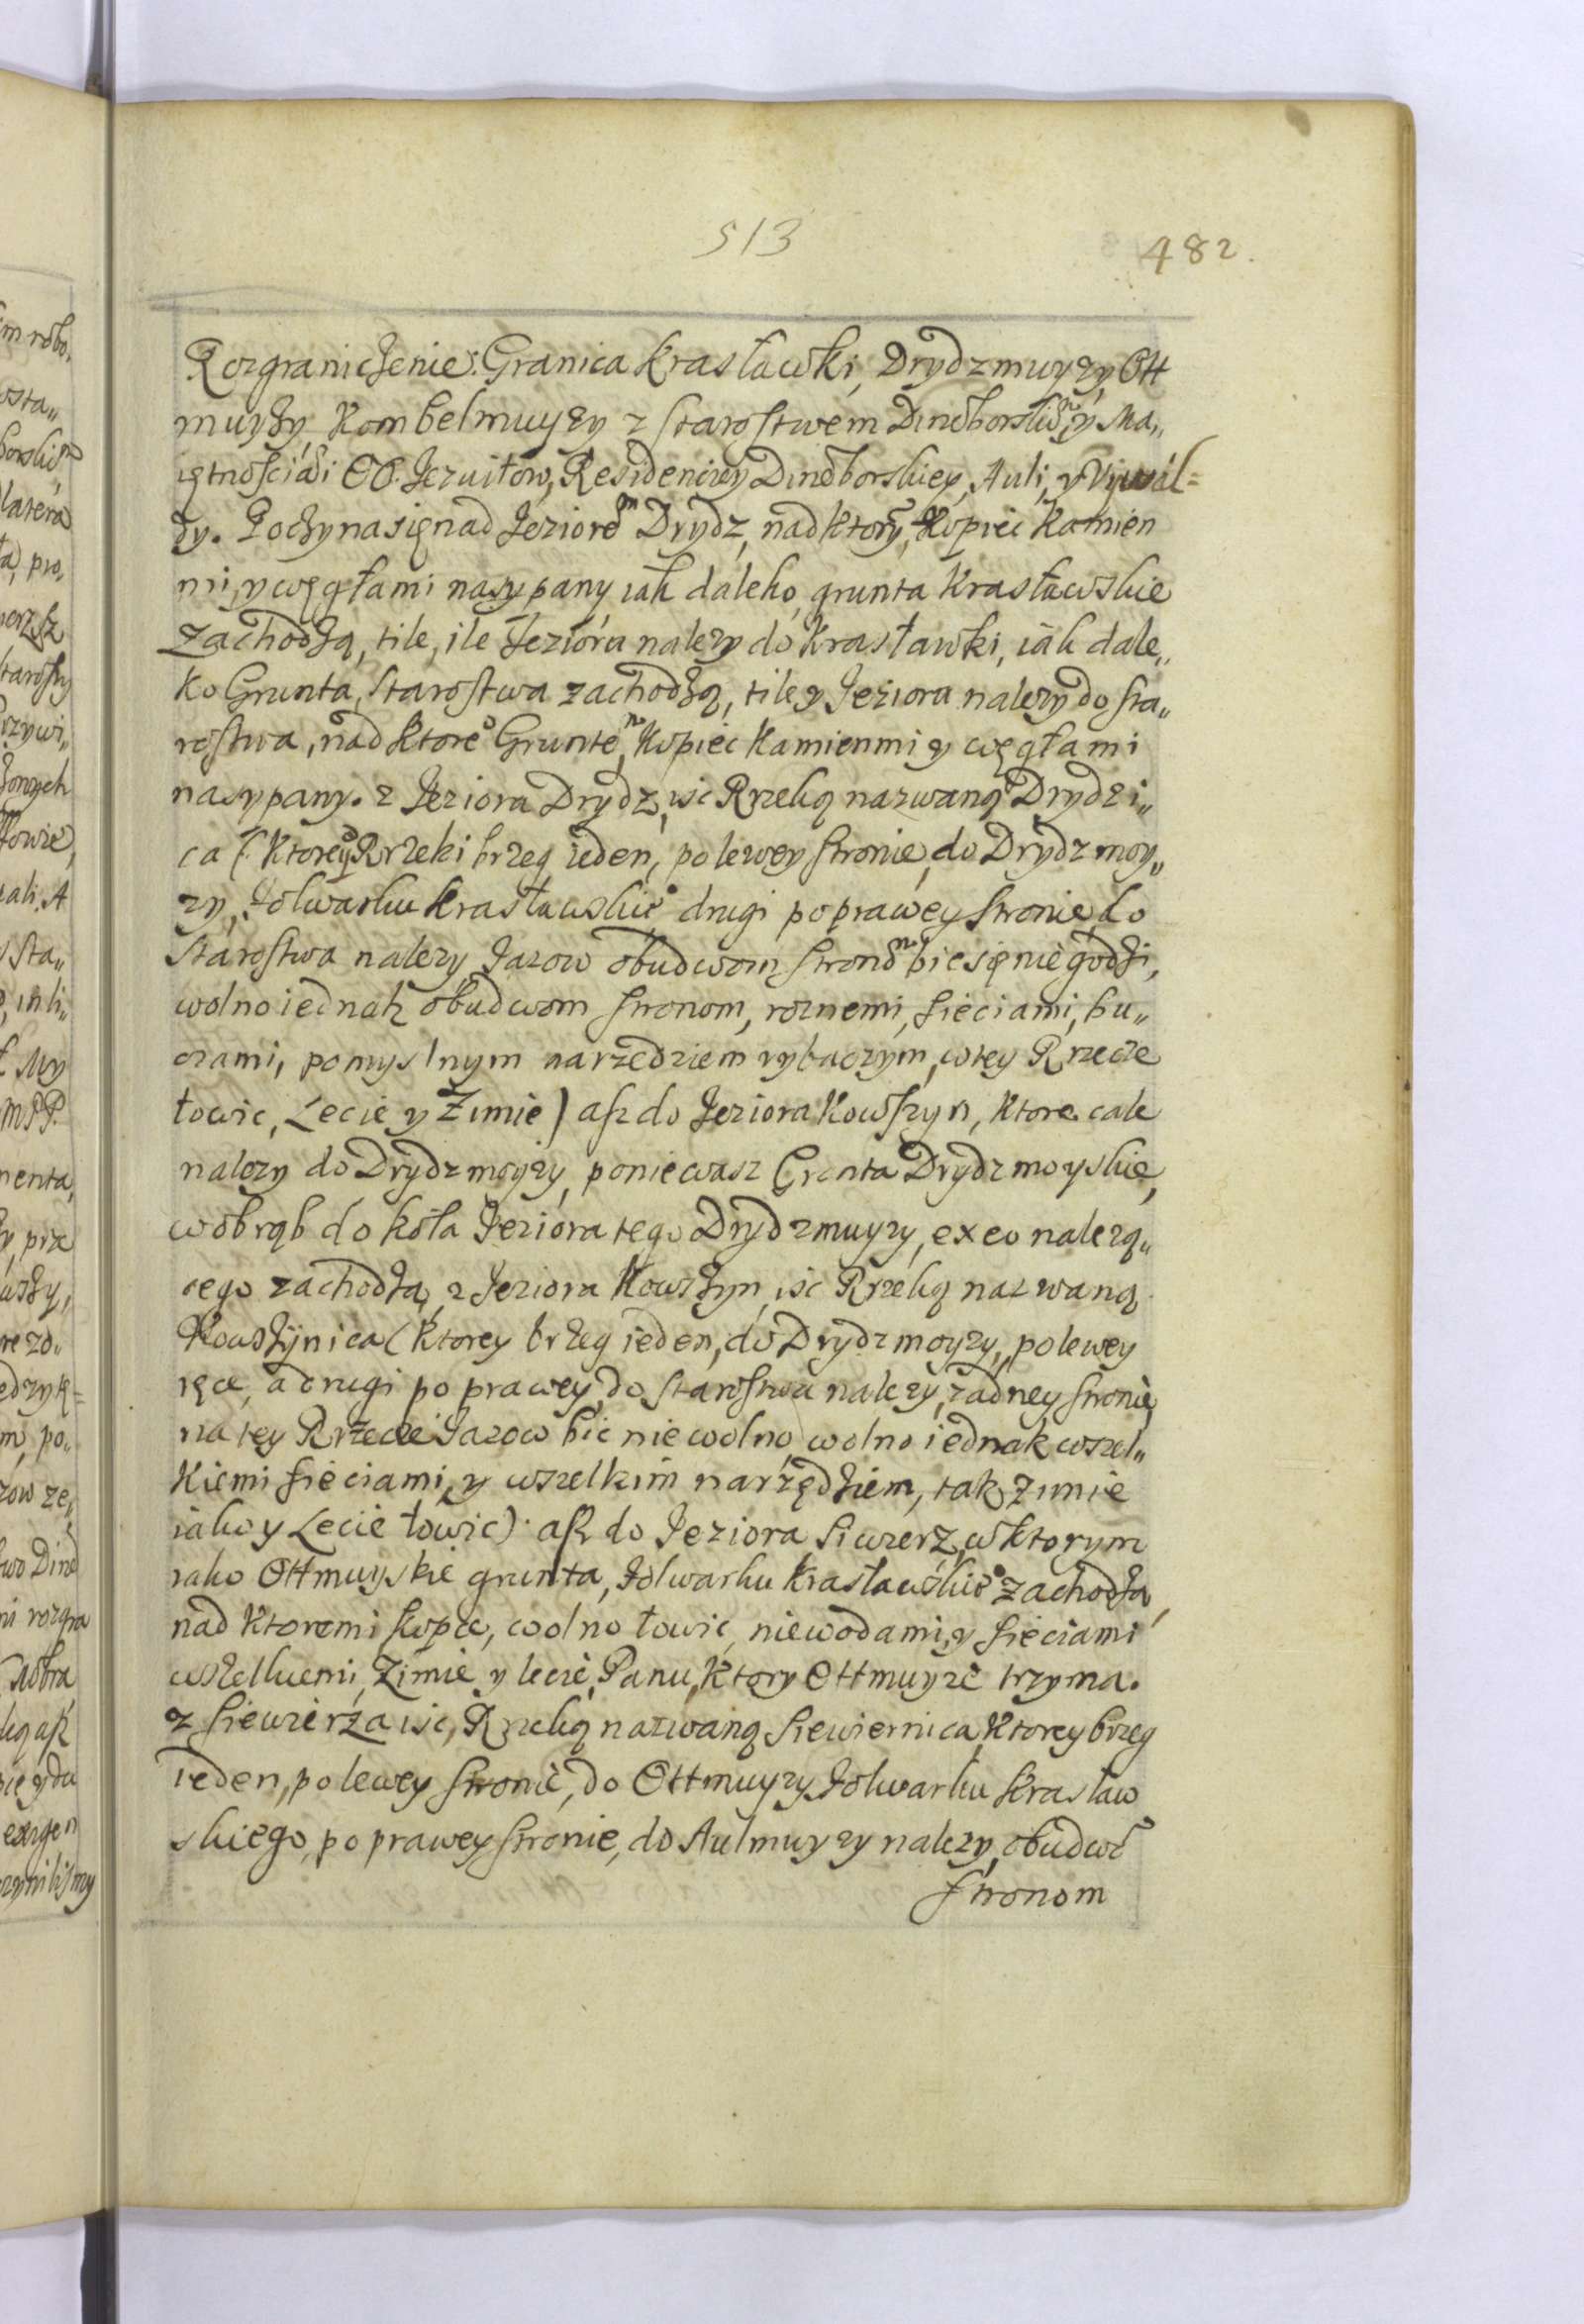 513
482.
Rozgraniczenie: Granica Krasławki, Drydzmuyzy, Ott
muyzy, Kombelmuyzy z Starostwem Dineborskim, y Ma„
iętnościami OO. Jezuitow, Residencyey Dineborskiey, Auli, y Uiwal=
zy. Poczyna się nad Jeziorem Drydz, nad ktorym, Kopiec Kamien
mi, y węgłami nasypany iak daleko, grunta Krasławskie
zachodzą, tile, ile Jeziora nalezy do Krasławki, iak dale„
ko Grunta, Starostwa zachodzą, tile y Jeziora nalezy do sta„
rostwa, nad ktorem Gruntem, Kopiec Kamienmi y węgłami
nasypany. z Jeziora Drydz, isc Rzeką nazwaną Drydzi„
ca (ktorey Rzeki brzeg ieden, po lewey stronie, do Drydzmoy„
zy, Folwarku Krasławskie° drugi po prawey stronie, do
Starostwa nalezy Jazow obudwom stronom bic się nie godzi,
wolno iednak obudwom stronom, roznemi, sieciami, bu„
czami, pomyslnym narzedziem rybaczym, w tey Rzecze
łowic, Lecie y Zimie) asz do Jeziora Kowszyn, ktore cale
nalezy do Drydzmoyzy, poniewasz Grunta Drydzmoyskie,
w obrąb do koła Jeziora tego Drydzmuyzy, ex eo nalezą„
cego zachodzą, z Jeziora Kowszyn, isc Rzeką nazwaną
Kowszynica (ktorey brzeg ieden, do Drydzmoyzy, po lewey
ręce, a drugi po prawey, do starostwa nalezy, zadney stronie,
na tey Rzecze Jazow bic nie wolno, wolno iednak wszel„
kiemi sieciami, y wszelkim narzędziem, tak zimie
iako y Lecie łowic). asz do Jeziora Siwerz, w ktorym
iako Ottmuyskie grunta, Folwarku Krasławskie° zachodzą,
nad ktoremi kopce, wolno łowic, niewodami, y sieciami
wszelkiemi, Zimie y lecie, Panu, ktory Ottmuyze trzyma.
z Siewierza isc, Rzeką nazwaną Siewiernica, ktorey brzeg
ieden, po lewey stronie, do Ottmuyzy Folwarku Krasław
skiego, po prawey stronie, do Aulmuyzy nalezy, obudwom
stronom